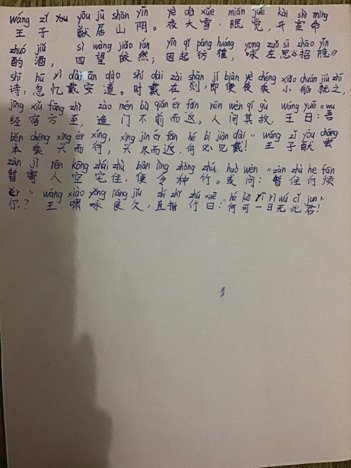 wáng zǐ yóu yōu jū shān yīn yè dà xuě mián jué kāi shì mìng
王子猷居山阴。夜大雪，眠觉，开室命
zhuó jiǔ sì wàng jiǎo rán yīn qǐ páng huáng yǒng zuǒ sī zhāo yǐn
酌酒，四望皎然；因起彷徨，咏左思《招隐》
shī hū yì dài ān dào shí dài zài shàn jí biàn yè chéng xiǎo chuán jiù zhī
诗，忽忆戴安道。时戴在剡，即便夜乘小船就之，
jīng xiǔ fāng zhì zào mén bù qián ér fǎn rén wèn qí gù wáng yuē wú
经宿方至，造门不前而返。人问其故，王曰：吾
běn chéng xìng ér xíng xìng jìn ér fǎn hé bì jiàn dài wáng zǐ yóu cháng
本乘兴而行，兴尽而返，何必见戴！王子猷尝
zàn jì rén kōng zhái zhù biàn lìng zhòng zhú huò wèn zàn zhù hé fán
暂寄人空宅住，便令种竹。或问：暂住何烦
ěr wáng xiào yǒng liáng jiǔ zhí zhǐ zhú yuē hé kě yí rì wú cǐ jūn
尔？王啸咏良久，直指竹曰：何可一日无此君！